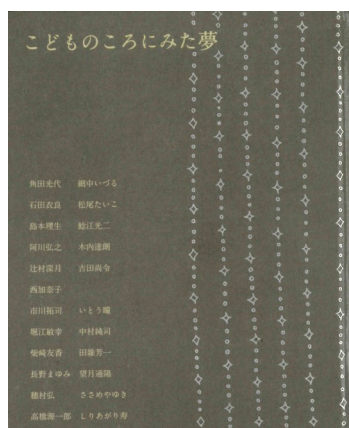 こどものころにみた夢
角田光代 網中いづる
石田衣良 松尾たいこ
島本理生 鯰江光二
阿川弘之 木内達朗
辻村深月 吉田尚令
西加奈子
市川拓司 いとう瞳
堀江敏幸 中村純司
柴崎友香 田雜芳一
長野まゆみ 望月通陽
穂村弘 ささめやゆき
高橋源一郎 しりあがり寿